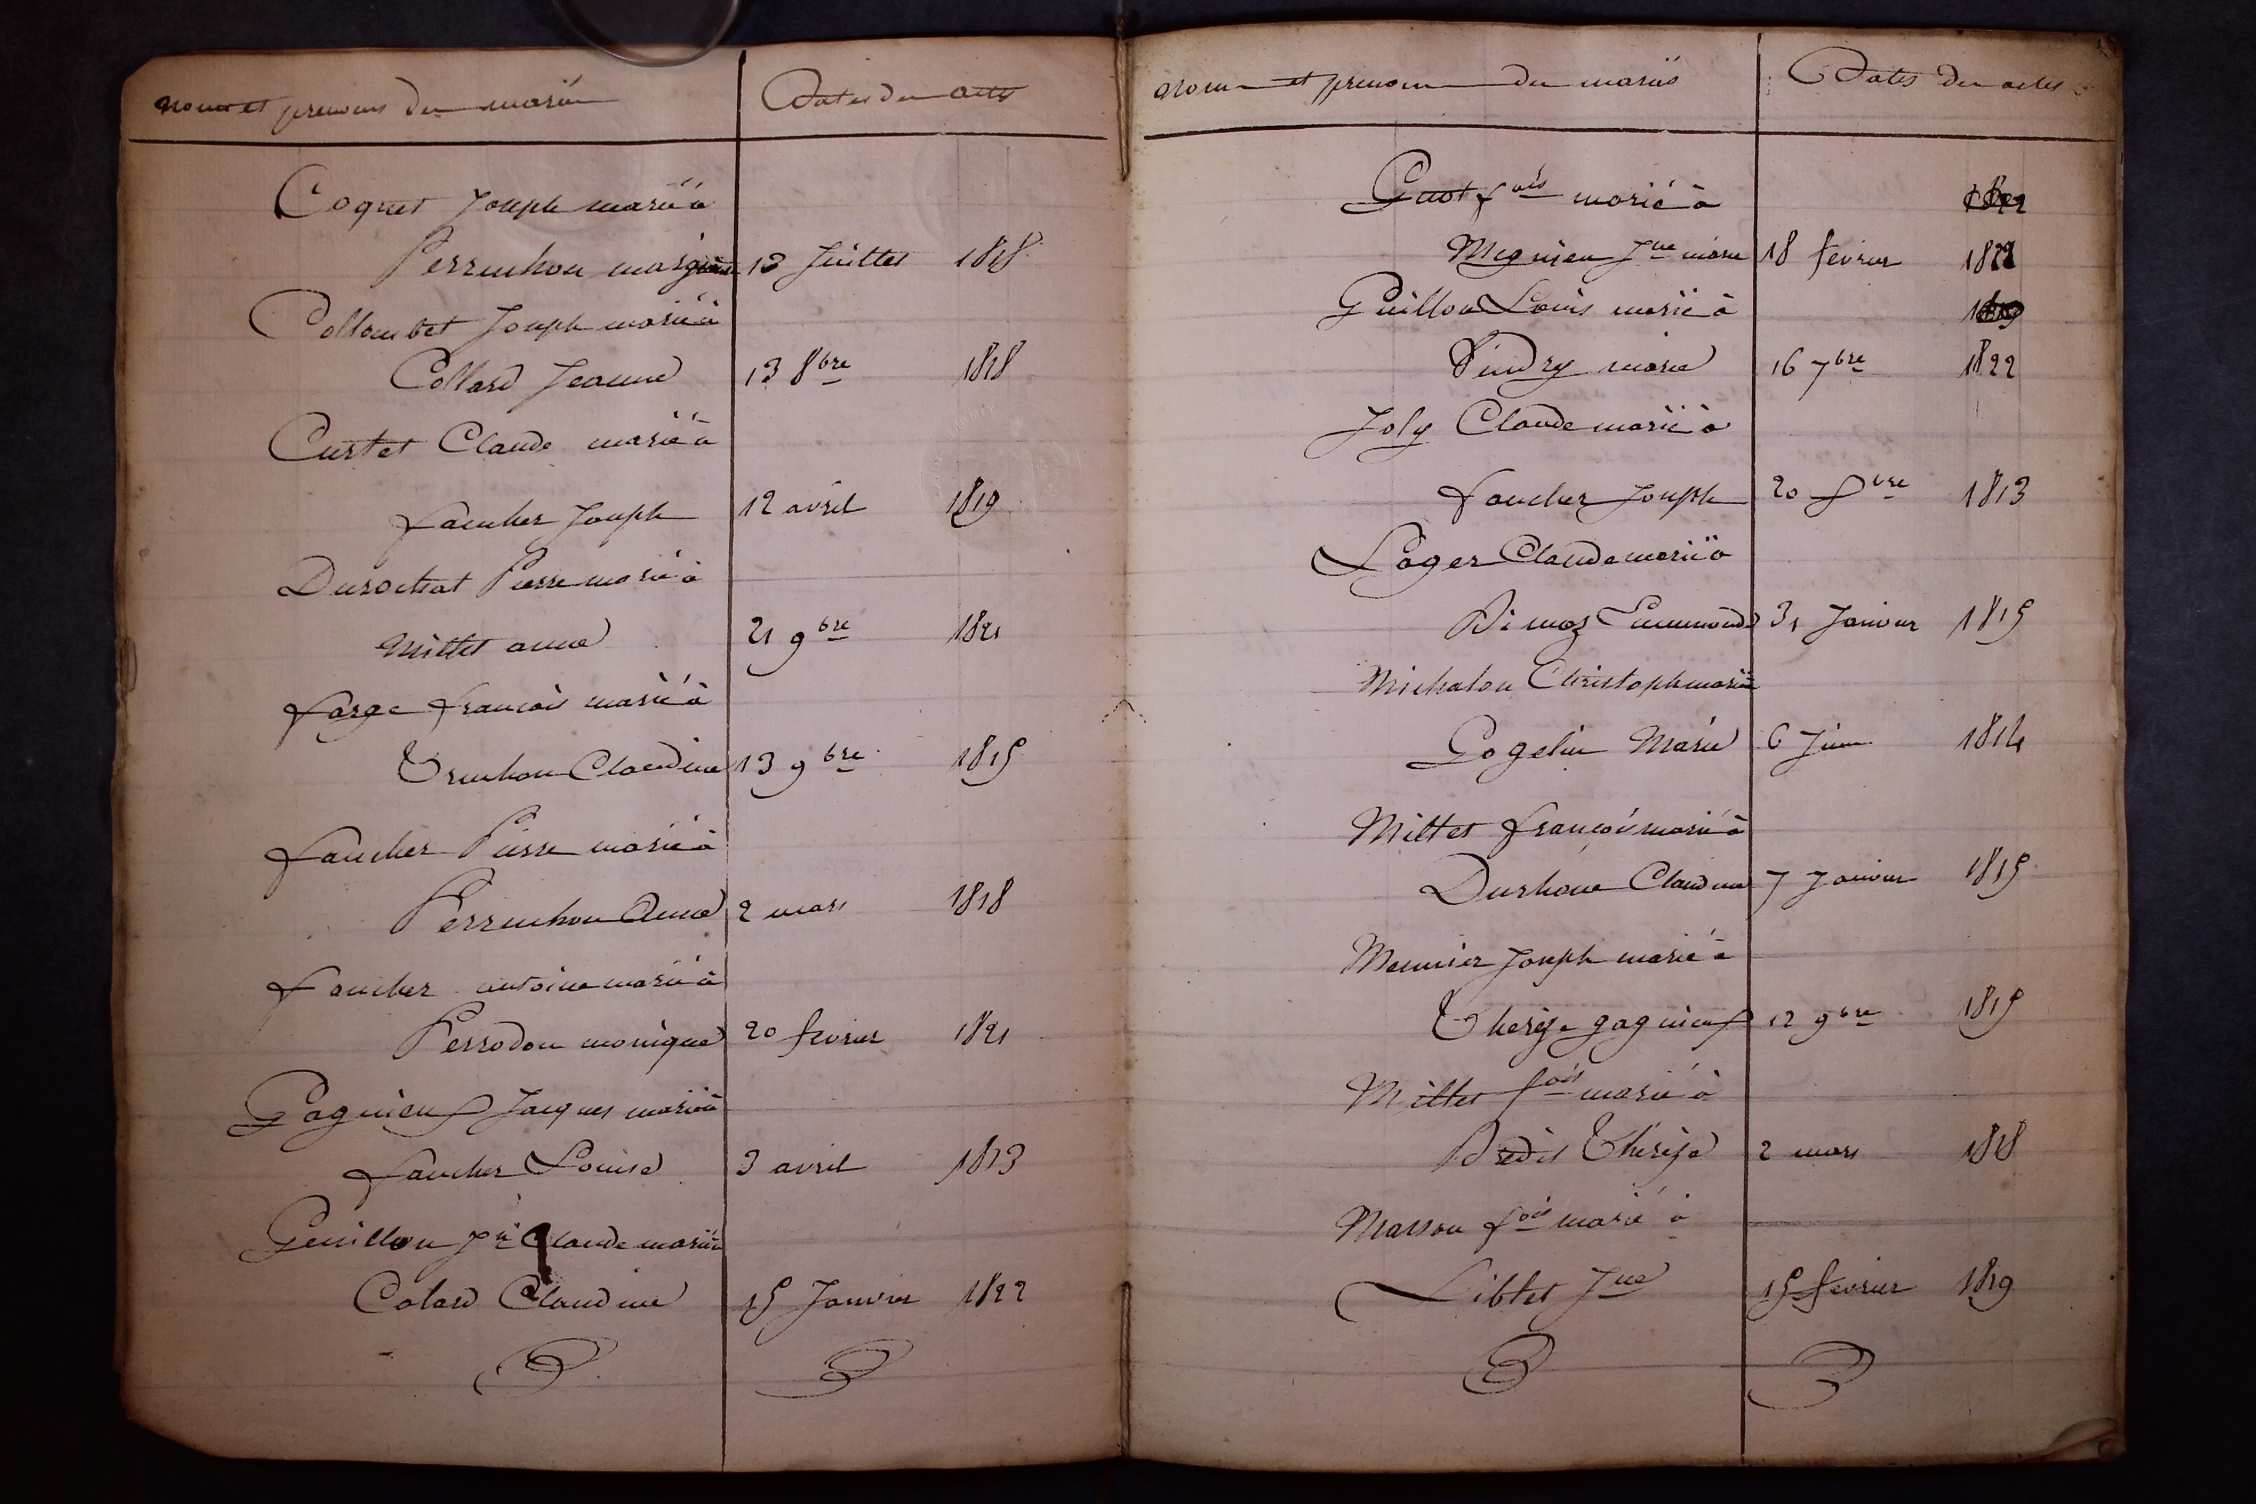 Noms et prenoms des mariés
Dates des actes
Coquet Joseph marié à
Perrachon margte 13 Juillet 1818
Collombet Joseph marié à
Collard Jeanne 13 8bre 1818
Curtet Claude marié à
faucher Joseph 12 avril 1819
Durochat Pierre marié à
Millet anne 21 9bre 1821
farge francois marié à
Truchon Claudine 13 9bre 1815
faucher Pierre marié à
Perrachon Anne 2 mars 1818
faucher antoine marié à
Perrodon monique 20 fevrier 1821
Gagnieux Jacques marié à
faucher Louise 3 avril 1813
Guillon Claude marié à
Colard Claudine 15 Janvier 1822
Noms et prenoms des mariés
Dates des actes
Guot fois marié à
Mignieu Jne marie 18 fevrier 1822
Guillon Louis marié à
Vindry marie 16 7bre 1822
Joly Claude marié à
faucher Joseph 20 8bre 1813
Loger Claude marié à
Bimoz Emmonde 31 Janvier 1815
Michalon Christoph marié
Gogelin Marie 6 Juin 1814
Millet françois marié à
Durhône Claudine 7 Janvier 1815
Meunier Joseph marié à
Thereze gagnieux 12 9bre 1815
Millet fois marié à
Bredis Thérèze 2 mars 1818
Masson fois marié à
Liblet Jne 15 fevrier 1819